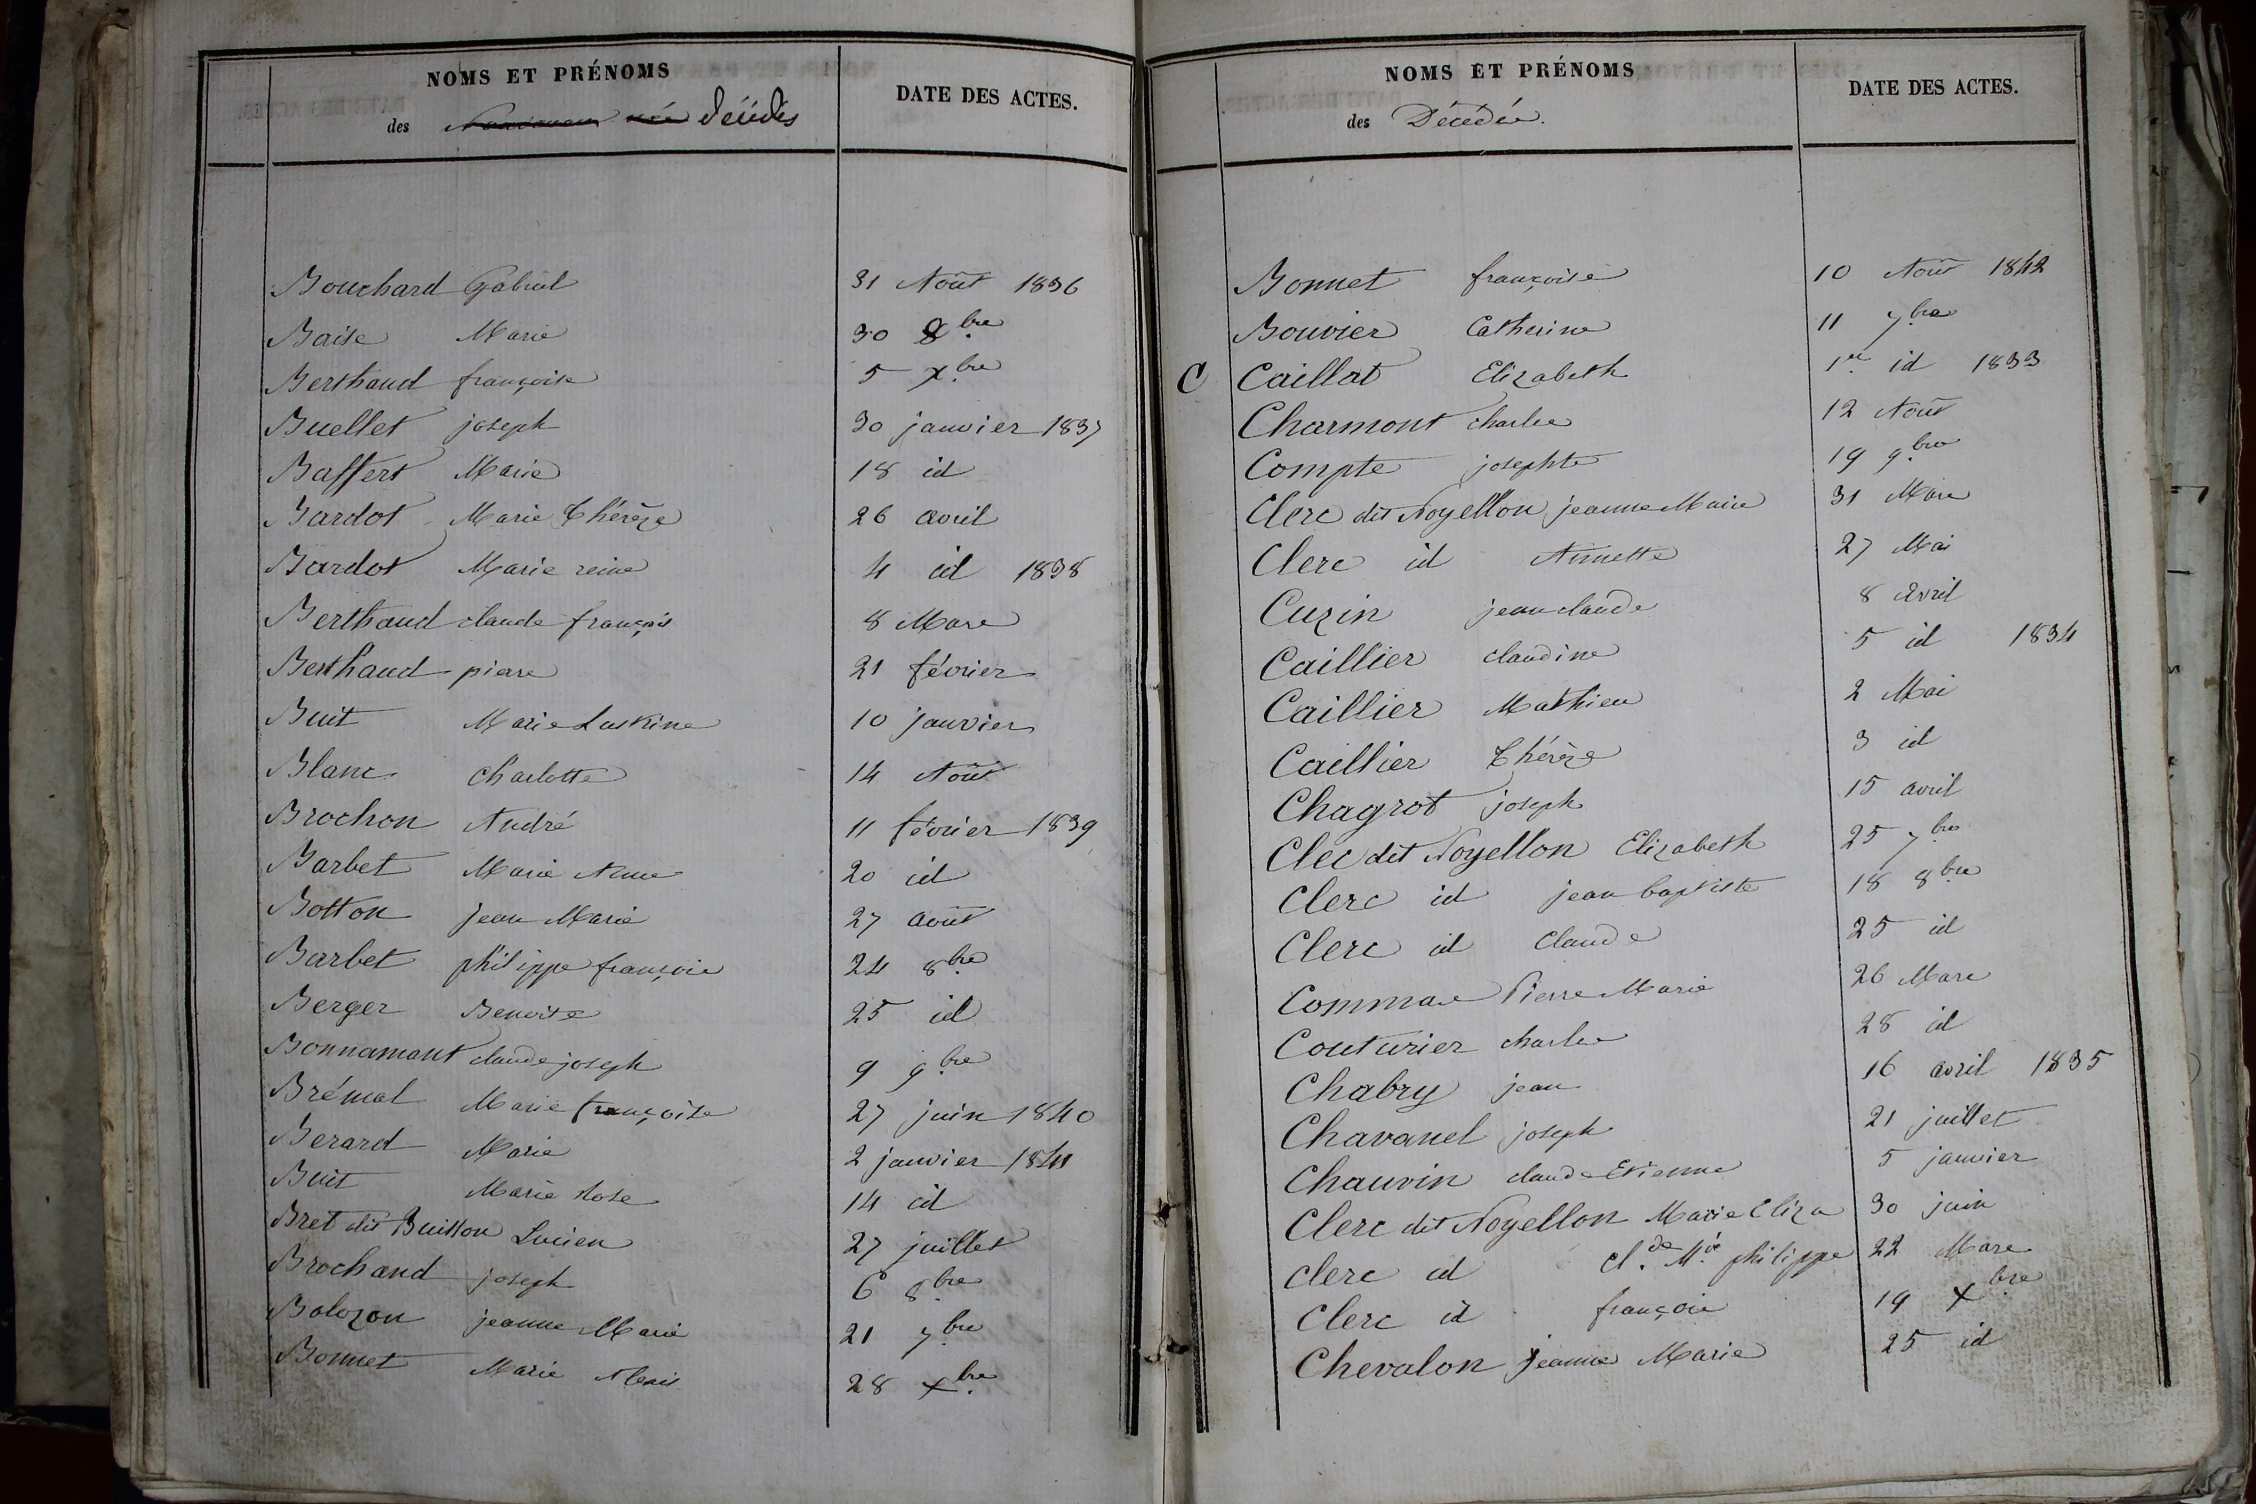 NOMS ET PRÉNOMS
des décédés
DATE DES ACTES.
Bouchard Gabriel 31 Août 1836
Baise Marie 30 8bre
Berthaud françoise 5 xbre
Buellet joseph 30 janvier 1837
Baffert Marie 18 id
Bardot Marie Thérèze 26 avril
Bardot Marie reine 4 id 1838
Berthaud claude françois 8 Mars
Berthaud piere 21 février
Buit Marie 10 janvier
Blanc Charlotte 14 Août
Brochon André 11 février 1839
Barbet Marie Anne 20 id
Botton Jean Marie 27 août
Barbet philippe françois 24 8bre
Berger Benoite 25 id
Bonnamant claude joseph 9 9bre
Brémal Marie françoise 27 juin 1840
Berard Marie 2 janvier 1841
Buit Marie Rose 14 id
Bret dit Buisson Lucien 27 juillet
Brochand joseph 6 8bre
Bolozon jeanne Marie 21 7bre
Bonnet Marie Alexis 28 xbre
NOMS ET PRÉNOMS
des Décédés.
DATE DES ACTES.
Bonnet françoise 10 Août 1842
Bouvier Catherine 11 7bre
C Caillat Elizabeth 1er id 1833
Charmont charles 12 Août
Compte josephte 19 9bre
Clerc dit Noyellon jeanne Marie 31 Mars
Clerc id Annette 27 Mai
Cuzin jean claude 8 avril
Caillier claudine 5 id 1834
Caillier Mathieu 2 Mai
Caillier Thérèze 3 id
Chagrot joseph 15 avril
Clec dit Noyellon Elizabeth 25 7bre
Clerc id jean baptiste 18 8bre
Clerc id Claude 25 id
Pierre Marie 26 Mars
Couturier charles 28 id
Chabry jean 16 avril 1835
Chavanel joseph 21 juillet
Chauvin claude Etienne 5 janvier
Clerc dit Noyellon Marie Eliza 30 juin
Clerc id Cl.de M.ie philippe 22 Mars
Clerc id françois 19 xbre
Chevalon jeanne Marie 25 id